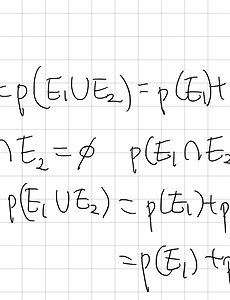 =p(E₁∪E₂)=p(E₁)+
∩E₂=ϕ p(E₁∩E₂
p(E₁∪E₂)=p(E₁)+p
=p(E₁)+p